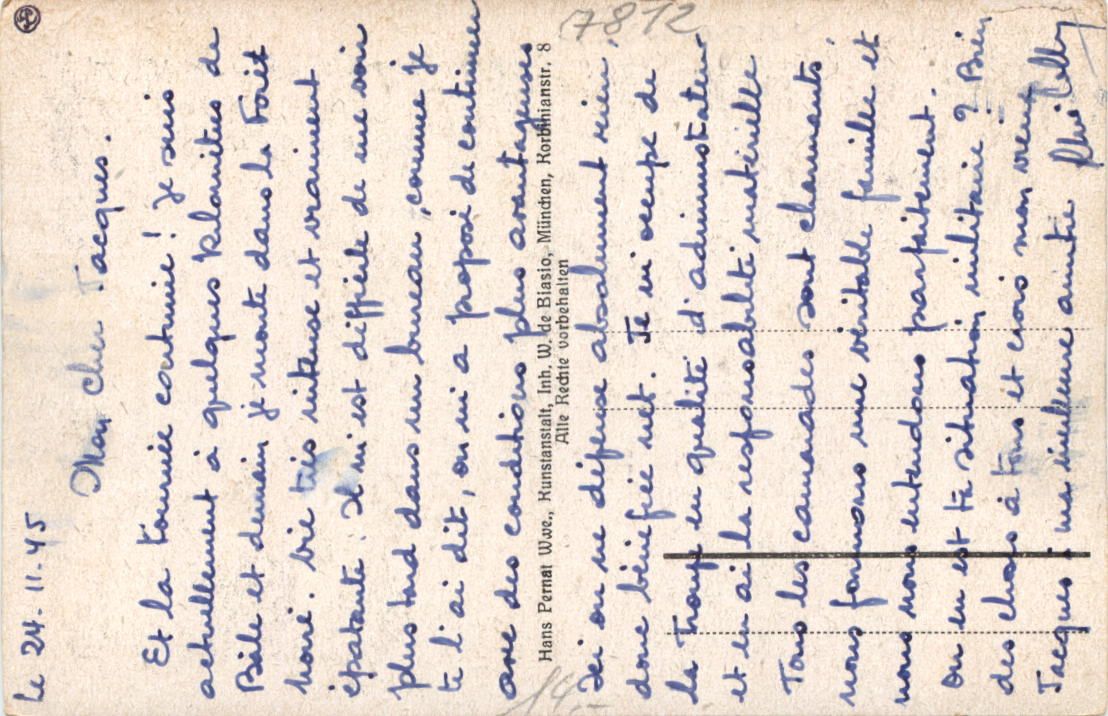 Le 24.11.45
Mon cher Jacques.
Et la tournée continue ! Je suis
actuellement à quelques kilomètres de
Bâle et demain je monte dans la Forêt
noire. Vie très intense et vraiment
épatante. Il m'est difficile de me voir
plus tard dans un bureau, comme je
te l'ai dit, on m'a proposé de continuer
avec des conditions plus avantageuses
Hans Pernat Wwe., Kunstanstalt, Inh. W. de Biasio, München, Korbinianstr. 8
Alle Rechte vorbehalten
Ici on ne dépense absolument rien,
donc bénéfice net. Je m'occupe de
la Troupe en qualité d'administrateur
et en ai la responsabilité matérielle
Tous les camarades sont charmants,
nous formons une véritable famille et
nous nous entendons parfaitement.
Où en est ta situation militaire ? Bien
des choses à tous et crois mon vieux
Jacques à ma meilleure amitié
7872
14.-